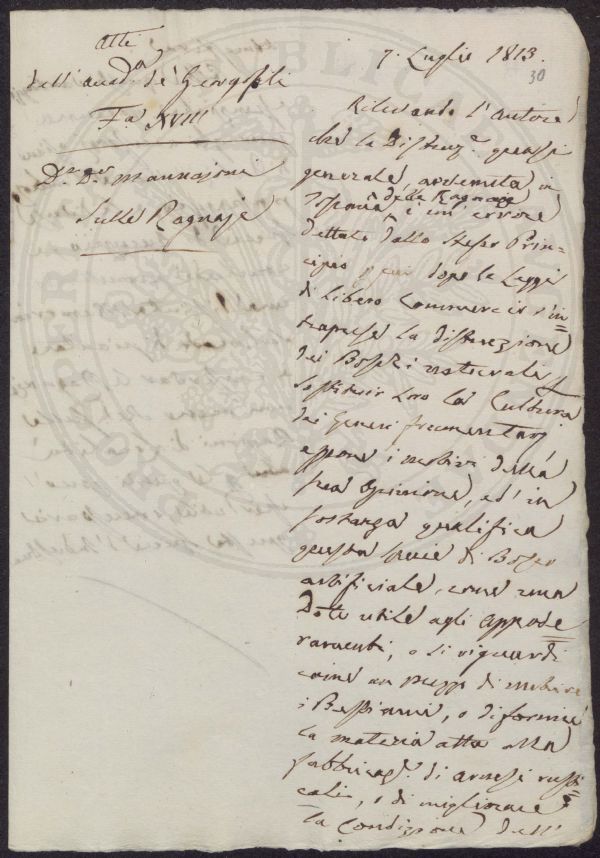 Atti
dell'Accad.a de' Georgofili
Fa. XVIII
Dr. Mannajoni
Sulle Ragnaje
7. Luglio 1813.
30
Rilevando l'Autore
che la Distruz.e quasi
generale avvenuta in
Toscana delle Ragnaje è un errore
dettato dallo stesso Prin=
cipio per cui dopo le Leggi
di libero Commercio s'in=
traprese la distruzione
dei Boschi naturali p
sostituir loro la Cultura
dei Generi frumentarj
espone i motivi della
sua Opinione, ed in
sostanza qualifica
questa specie di Bosco
artificiale, come una
Dote utile agli appode=
ramenti, o si riguardi
come un mezzo di nutrire
i Bestiami, o di fornire
la materia atta alla
fabbricaz.e di arnesi rusti=
cali, o di migliorare
la Condizione dell'